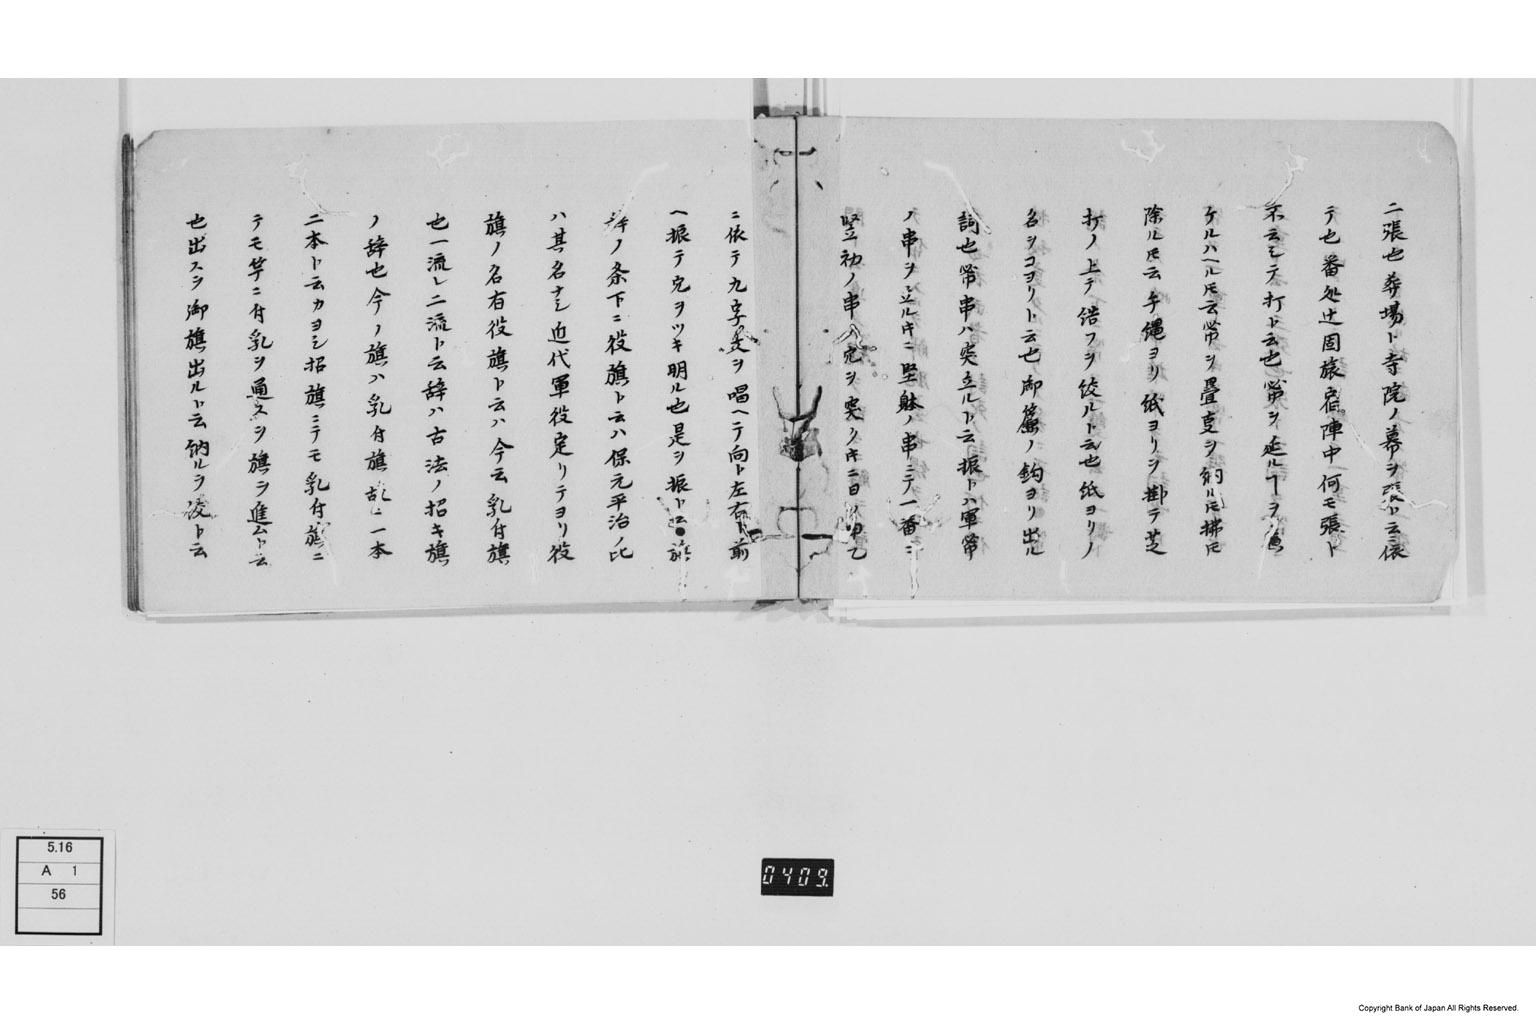 ニ張也葬場ト寺院ノ幕ヲ張ト云ニ依
テ也番処辻固旅宿陣中何モ張ト
不云シテ打ト云也幕ヲ延ルヿヲ
ケルハヘルトモ云幕ヲ畳
除ルトモ云手縄ヨリ紙ヨリヲ掛テ芝
打ノ上テ結フヲ絞ルト云也紙ヨリノ
名ヲコヨリト云也御簾ノ鈎ヨリ出ル
詞也幕串ハ突立ルト云振トハ軍幕
ノ串ヲ立ルトキニ堅躰ノ串ニテ一番ニ
竪初ノ串ハ穴ヲ突クトキニ日ノ甲乙
ニ依テ九字文ヲ唱ヘテ向ト左右ト前
ヘ振テ穴ヲツキ明ル也是ヲ振ト云●旗
ノ条下ニ役旗ト云ハ保元平治ノ比
ハ其名ナシ近代軍役定リテヨリ役
旗ノ名有役旗ト云ハ今云乳付旗
也一流レ二流ト云辞ハ古法ノ招キ旗
ノ辞也今ノ旗ハ乳付旗故ニ一本
二本ト云カヨシ招旗ニテモ乳付旗ニ
テモ竿ニ付乳ヲ通スヲ旗ヲ進ムト云
也出スヲ御旗出ルト云納ルヲ ト云
5.16
A 1
56
0409.
Copyright Bank of Japan All Rights Reserved.